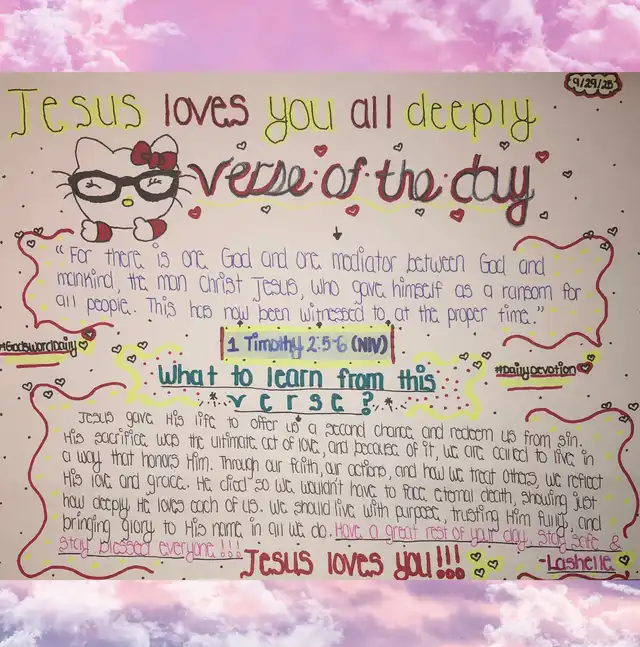 9/29/25
Jesus loves you all deeply
verse of the day
"For there is one God and one mediator between God and
mankind, the man Christ Jesus, who gave himself as a ransom for
all people. This has now been witnessed to at the proper time."
1 Timothy 2:5-6 (NIV)
#GodsWordDaily
#DailyDevotion
What to learn from this
verse?
Jesus gave His life to offer us a second chance and redeem us from sin.
His sacrifice was the ultimate act of love, and because of it, we are called to live in
a way that honors Him. Through our faith, our actions, and how we treat others, we reflect
His love and grace. He died so we wouldn't have to face eternal death, showing just
how deeply He loves each of us. We should live with purpose, trusting Him fully, and
bringing glory to His name in all we do. Have a great rest of your day, stay safe &
stay blessed everyone!!!
Jesus loves you!!!
-Lashelle